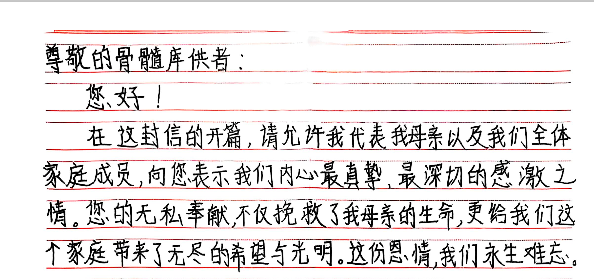 尊敬的骨髓库供者：
您好！
在这封信的开篇，请允许我代表我母亲以及我们全体
家庭成员，向您表示我们内心最真挚、最深切的感激之
情。您的无私奉献，不仅挽救了我母亲的生命，更给我们这
个家庭带来了无尽的希望与光明。这份恩情，我们永生难忘。